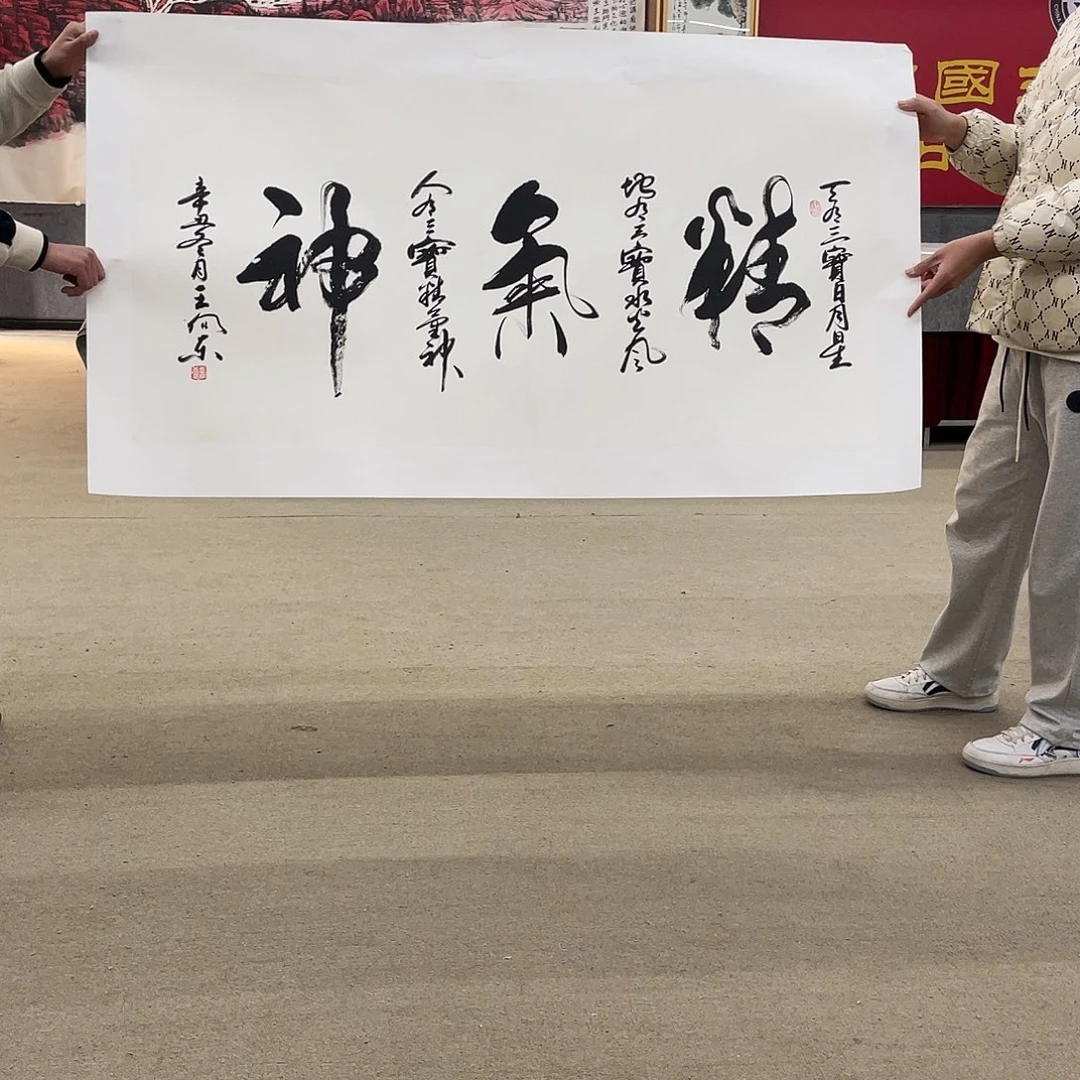 天有三寶日月星
精
地有三寶水火風
氣
人有三寶精氣神
神
辛丑冬月王向東
國